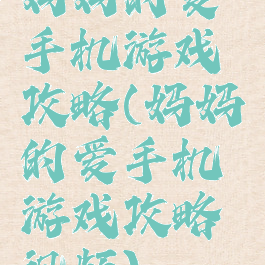 妈妈的爱
手机游戏
攻略(妈妈
的爱手机
游戏攻略
视频)